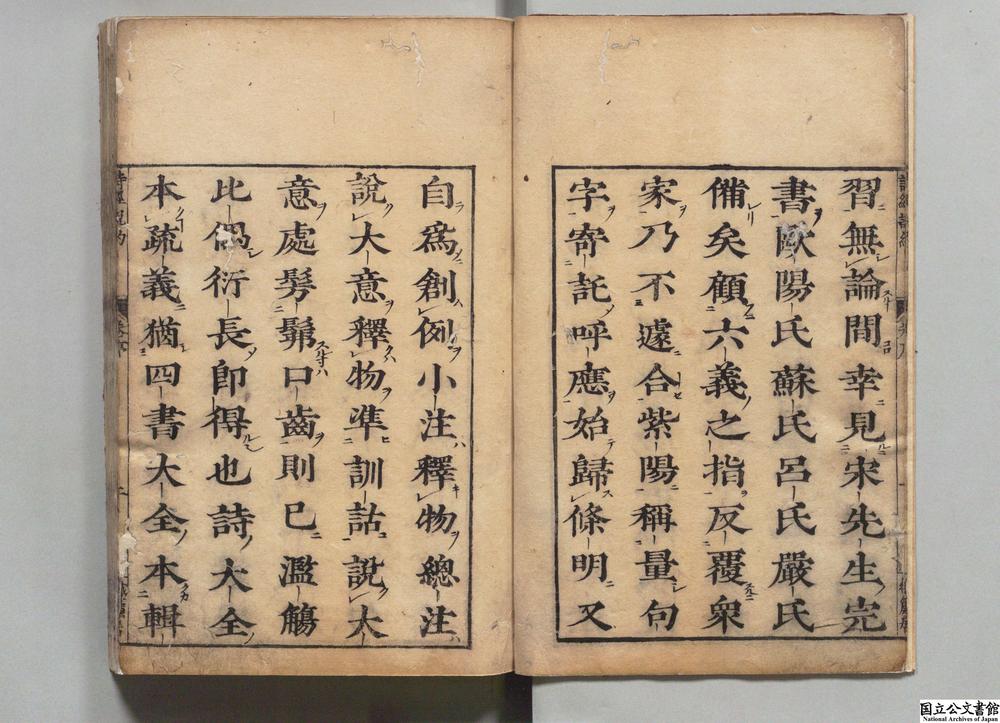 習無論間幸見宋先生完
書歐陽氏蘇氏呂氏嚴氏
備矣顧六義之指反覆衆
家乃不遽合紫陽稱量句
字寄託呼應始歸條明又
自爲創例小注釋物總注
說大意釋物準訓詁說大
意處髣髴口齒則已濫觴
比偶衍長即得也詩大全
本疏義猶四書大全本輯
国立公文書館
National Archives of Japan